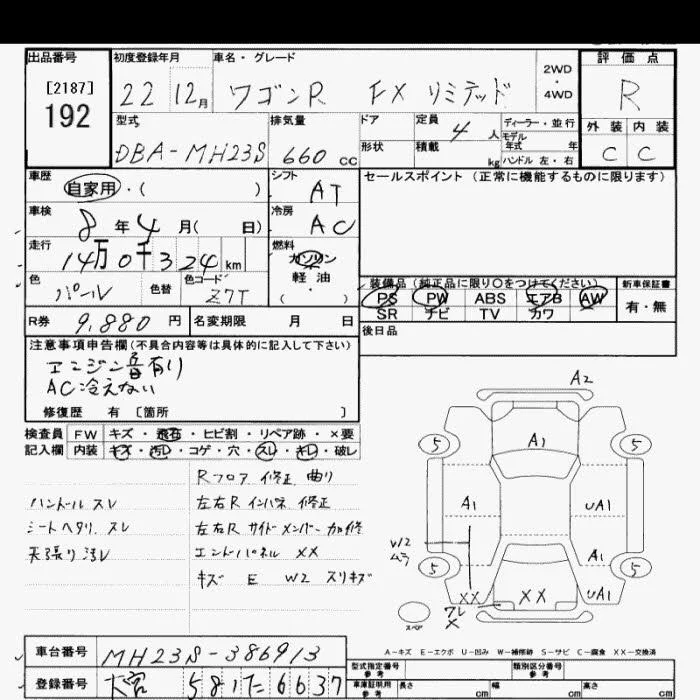 出品番号 初度登録年月 車名・グレード 2WD・4WD 評価点
[2187]
192
22 12月 ワゴンR FX リミテッド R
型式 排気量 ドア 定員 4人 ディーラー・並行 外装 内装
モデル年式 年
形状 積載 kg ハンドル 左・右
DBA-MH23S 660 CC C C
車歴 自家用・( )
シフト AT
セールスポイント(正常に機能するものに限ります)
車検 8年4月( 日)
冷房 AC
走行 14万0千324km
燃料 ガソリン 軽油 ( )
色 パール 色替 色コード Z7T
装備品(純正品に限り○をつけてください) 新車保証書
PS PW ABS エアB AW 有・無
SR ナビ TV カワ
R券 9,880円 名変期限 月 日
後日品
注意事項申告欄(不具合内容等は具体的に記入して下さい)
エンジン音有り
AC冷えない
修復歴 有 [箇所 ]
検査員 FW キズ・飛石・ヒビ割・リペア跡・×要
記入欄 内装 キズ・汚レ・コゲ・穴・スレ・キレ・破レ
Rフロア 修正 曲り
ハンドル スレ 左右R インパネ 修正
シートヘタリ、スレ 左右R サイドメンバー 加修
天張り 汚レ エンドパネル ××
キズ E W2 スリキズ
A2
5 A1 5
A1 UA1
W12
ムラ
A1
5 5
×× ×× UA1
ワレ
×
スペア
A-キズ E-エクボ U-凹み W-補修跡 S-サビ C-腐食 XX-交換済
車台番号 MH23S-386913
登録番号 大宮 581 た 6637
型式指定番号 参考 類別区分番号 参考
車庫証明用 参考 長さ cm 幅 cm 高さ cm